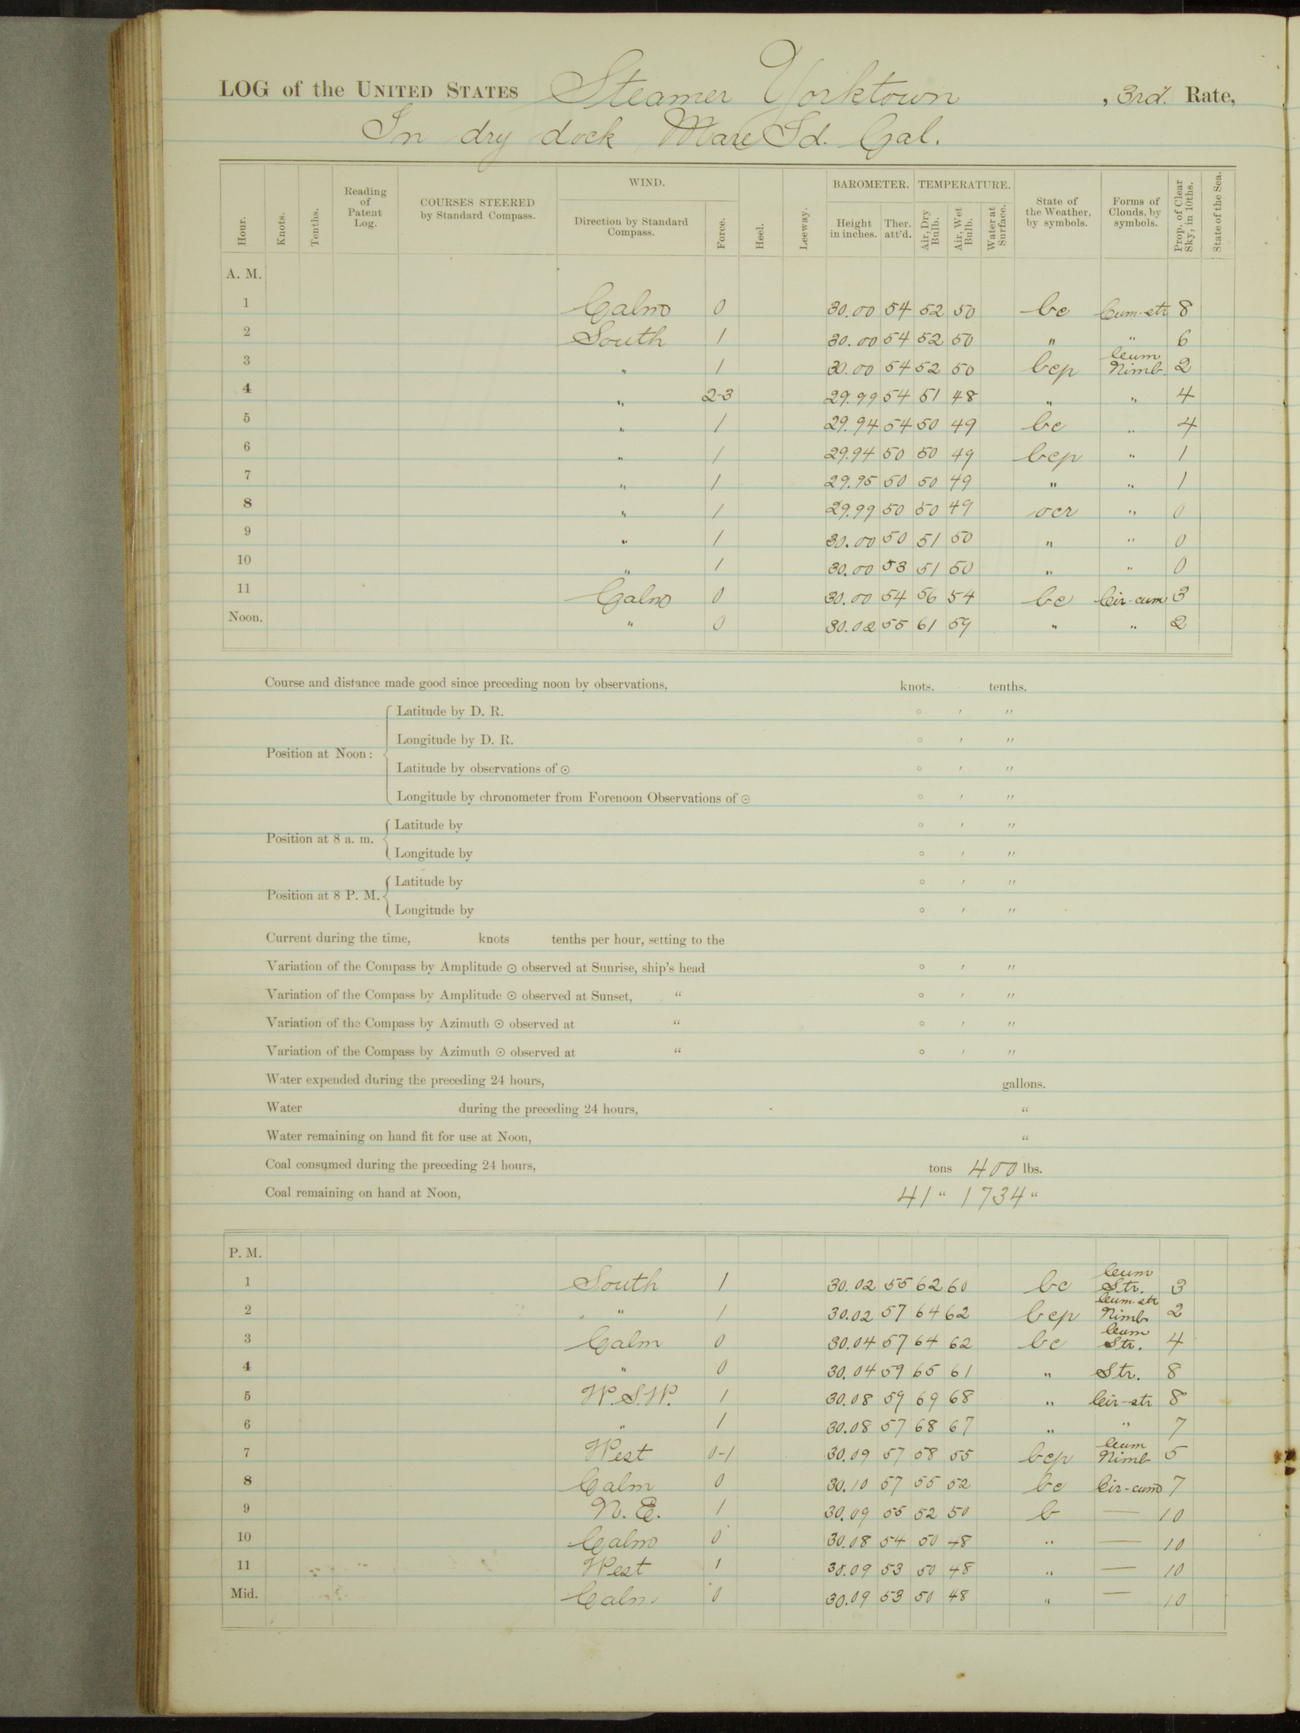 LOG of the UNITED STATES Steamer Yorktown , 3rd. Rate,
In dry dock Mare Id. Cal.
Hour. Knots. Tenths. Reading of Patent Log. COURSES STEERED by Standard Compass. WIND. Direction by Standard Compass. Force. Heel. Leeway. BAROMETER. Height in inches. Ther. att'd. TEMPERATURE. Air, Dry Bulb. Air, Wet Bulb. Water at Surface. State of the Weather, by symbols. Forms of Clouds, by symbols. Prop. of Clear Sky, in 10ths. State of the Sea.
A. M.
1 Calm 0 30.00 54 52 50 bc Cum-str 8
2 South 1 30.00 54 52 50 " " 6
3 " 1 30.00 54 52 50 bcp Cum Nimb. 2
4 " 2-3 29.99 54 51 48 " " 4
5 " 1 29.94 54 50 49 bc " 4
6 " 1 29.94 50 50 49 bcp " 1
7 " 1 29.95 50 50 49 " " 1
8 " 1 29.99 50 50 49 ocr " 0
9 " 1 30.00 50 51 50 " " 0
10 " 1 30.00 53 51 50 " " 0
11 Calm 0 30.00 54 56 54 bc Cir-cum 3
Noon. " 0 30.02 55 61 59 " " 2
Course and distance made good since preceding noon by observations, knots. tenths.
Position at Noon: Latitude by D. R. ° ′ ″
Longitude by D. R. ° ′ ″
Latitude by observations of ⊙ ° ′ ″
Longitude by chronometer from Forenoon Observations of ⊙ ° ′ ″
Position at 8 a. m. Latitude by ° ′ ″
Longitude by ° ′ ″
Position at 8 P. M. Latitude by ° ′ ″
Longitude by ° ′ ″
Current during the time, knots tenths per hour, setting to the
Variation of the Compass by Amplitude ⊙ observed at Sunrise, ship's head ° ′ ″
Variation of the Compass by Amplitude ⊙ observed at Sunset, " ° ′ ″
Variation of the Compass by Azimuth ⊙ observed at " ° ′ ″
Variation of the Compass by Azimuth ⊙ observed at " ° ′ ″
Water expended during the preceding 24 hours, gallons.
Water during the preceding 24 hours, "
Water remaining on hand fit for use at Noon, "
Coal consumed during the preceding 24 hours, tons 400 lbs.
Coal remaining on hand at Noon, 41 " 1734 "
P. M.
1 South 1 30.02 55 62 60 bc Cum Str. 3
2 " 1 30.02 57 64 62 bcp Cum-str Nimb 2
3 Calm 0 30.04 57 64 62 bc Cum Str. 4
4 " 0 30.04 59 65 61 " Str. 8
5 W.S.W. 1 30.08 59 69 68 " Cir-str 8
6 " 1 30.08 57 68 67 " " 7
7 West 0-1 30.09 57 58 55 bcp Cum Nimb 5
8 Calm 0 30.10 57 55 52 bc Cir-cum 7
9 N. E. 1 30.09 55 52 50 b — 10
10 Calm 0 30.08 54 50 48 " — 10
11 West 1 30.09 53 50 48 " — 10
Mid. Calm 0 30.09 53 50 48 " — 10